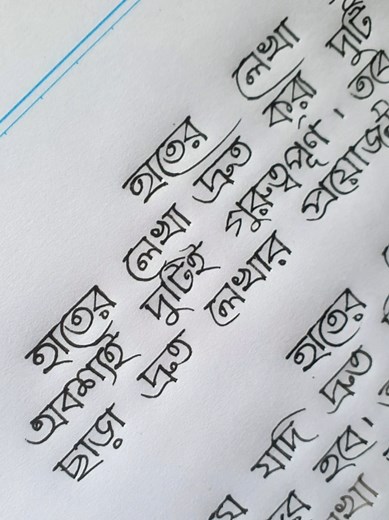 হাতের লেখা
হাতের লেখা দ্রুত করা দুটি
অবশ্যই দুটিই গুরুত্বপূর্ণ। তবে
ছাড়া দ্রুত লেখার
হাতের
যদি দ্রুত
হবে।